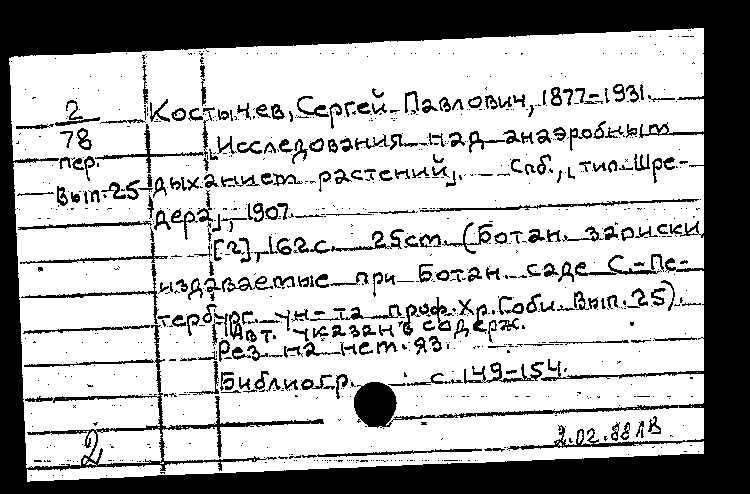 2
78
пер.
Вып. 25
Костычев, Сергей Павлович, 1877-1931.
Исследования над анаэробным
дыханием растений]. Спб., [тип. Шре-
дера], 1907.
[2], 162 с. 25 см. (Ботан. записки,
издаваемые при Ботан. саде С.-Пе-
тербург. ун-та проф. Хр. Гоби. Вып. 25).
Авт. указан в содерж.
Рез. на нем. яз.
Библиогр. с. 149-154.
2
2.02.88